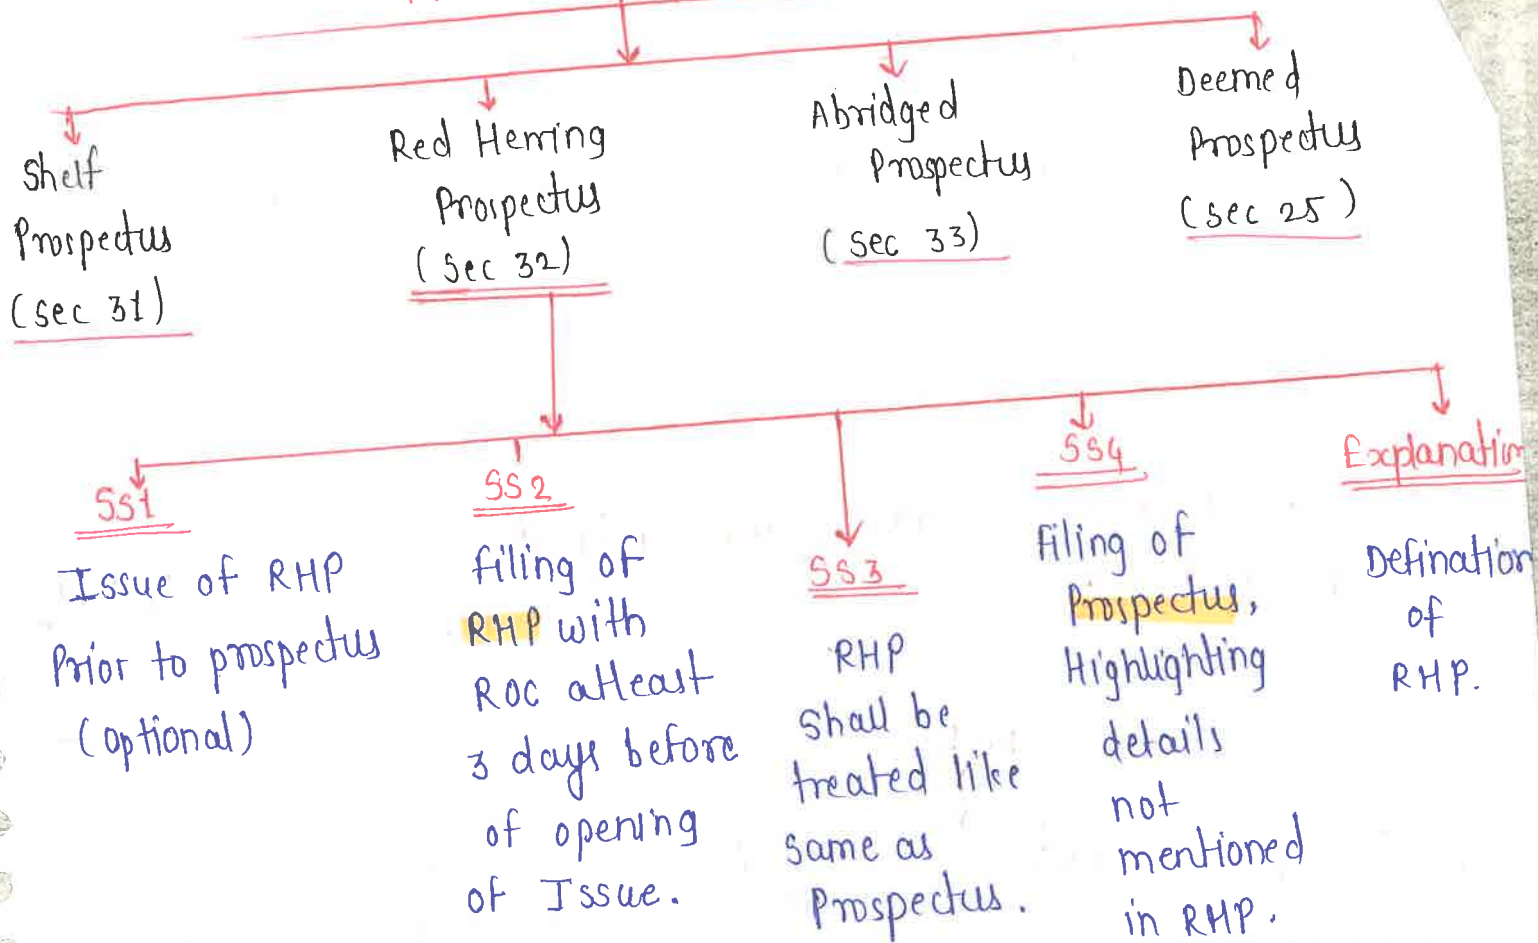 Shelf
Prospectus
(sec 31)
Red Herring
Prospectus
(Sec 32)
Abridged
Prospectus
(sec 33)
Deemed
Prospectus
(sec 25)
SS1
Issue of RHP
Prior to prospectus
(optional)
SS2
filing of
RHP with
ROC atleast
3 days before
of opening
of Issue.
SS3
RHP
shall be
treated like
same as
Prospectus.
SS4
filing of
Prospectus,
Highlighting
details
not
mentioned
in RHP.
Explanation
Defination
of
RHP.